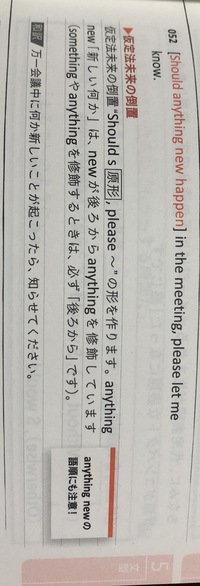 052 [Should anything new happen] in the meeting, please let me
know.
▶仮定法未来の倒置
仮定法未来の倒置 "Should s 原形, please ～" の形を作ります。anything
new「新しい何か」は、new が後ろから anything を修飾しています
(something や anything を修飾するときは、必ず「後ろから」です)。
anything new の
語順にも注意!
和訳 万一会議中に何か新しいことが起こったら、知らせてください。
5
文法